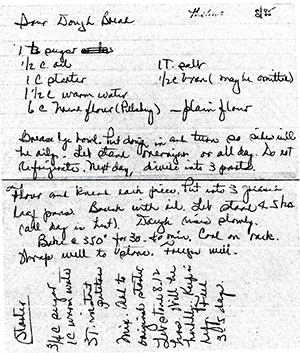 Sour Dough Bread
Thelma's 8/85
1 T sugar
1 T. salt
1/2 c. oil
1/2 c bran (maybe omitted)
1 C starter
1 1/2 C warm water
6 c flour (Pillsbury) — plain flour
Grease lg. bowl. Put dough in and turn so sides will
be oily. Let stand overnight or all day. Do not
refrigerate. Next day, divide into 3 parts.
Flour and knead each piece. Put into 3 greased
loaf pans. Brush with oil. Let stand 4-5 hrs
(all day is best). Dough rises slowly.
Bake @ 350° for 30-40 min. Cool on rack.
Wrap well to store. Freezes well.
Starter
3/4 C sugar
1 C warm water
3 T. instant
potatoes
Mix. Add to
original starter
Let stand 8-12
hrs. Will be
bubbly. Keep in
refrig. Feed
every
3 to 5 days.